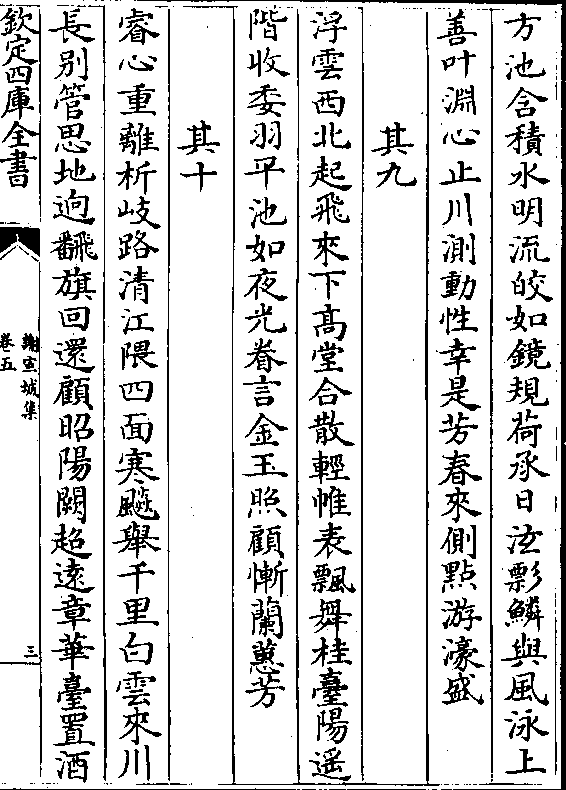 方池含積水明流皎如鏡規荷承日泫彯鱗與風泳上
善叶淵心止川測動性幸是芳春來側點游濠盛
其九
浮雲西北起飛來下髙堂合散輕帷表飄舞桂臺陽遥
階收委羽平池如夜光眷言金玉照顧慚蘭蕙芳
其十
睿心重離析岐路清江隈四面寒飇舉千里白雲來川
長别管思地迥翻旗回還顧昭陽闕超逺章華臺置酒
欽定四庫全書
謝宣城集
卷五
三